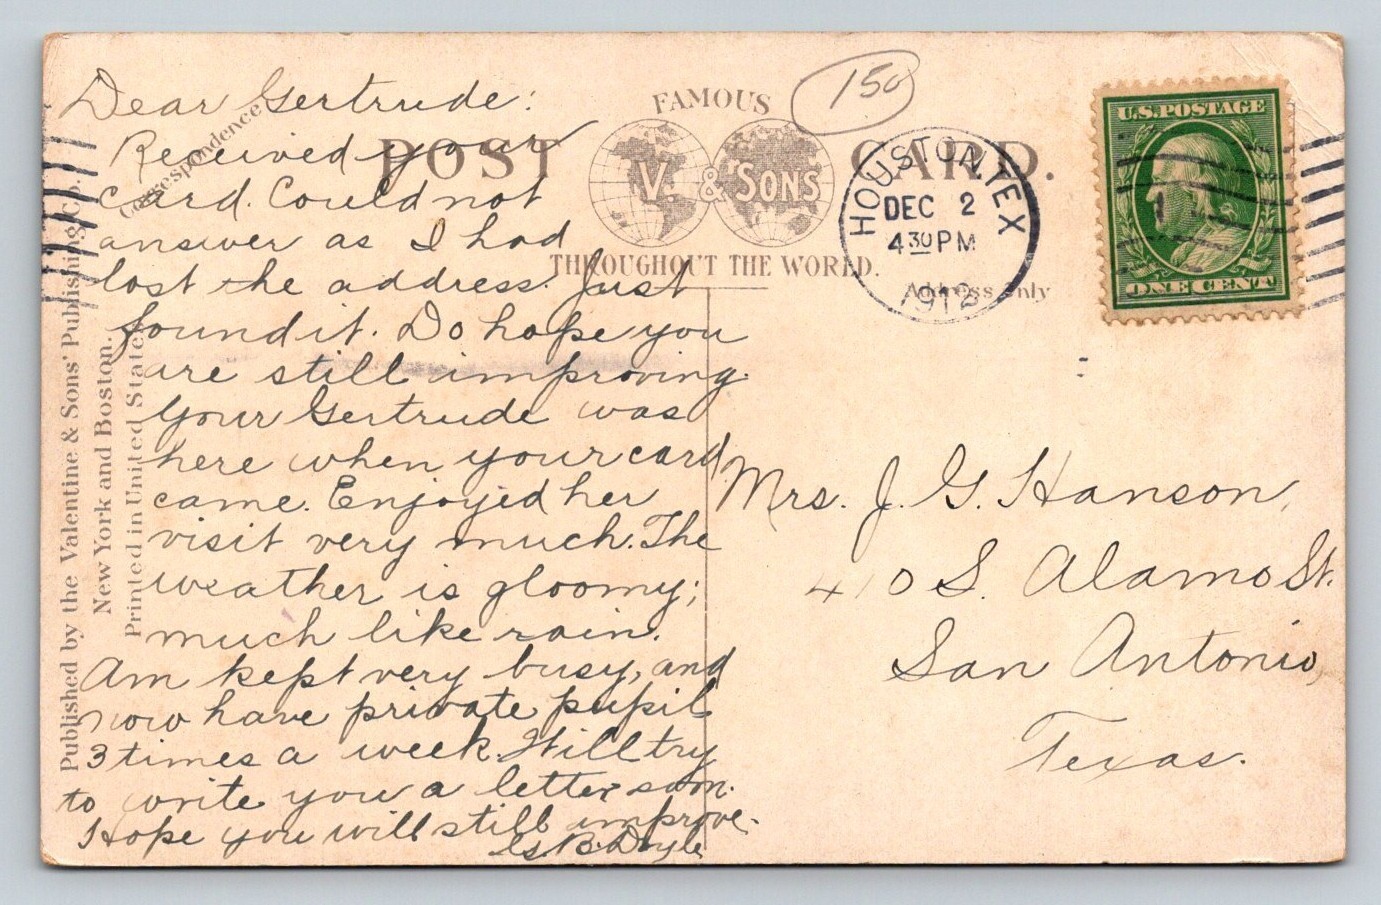 Dear Gertrude:
Received your
card. Could not
answer as I had
lost the address. Just
found it. Do hope you
are still improving.
Your Gertrude was
here when your card
came. Enjoyed her
visit very much. The
weather is gloomy;
much like rain.
Am kept very busy, and
now have private pupil
3 times a week. Will try
to write you a letter soon.
Hope you will still improve.
B. Doyle
Correspondence
Published by the Valentine & Sons' Publishing Co.
New York and Boston.
Printed in United States
FAMOUS
POST CARD.
V. & SONS
THROUGHOUT THE WORLD.
Address Only
150
HOUSTON, TEX
DEC 2
4 30 PM
1912
U.S. POSTAGE
1
ONE CENT
Mrs. J. G. Hanson,
410 S. Alamo St.
San Antonio,
Texas.